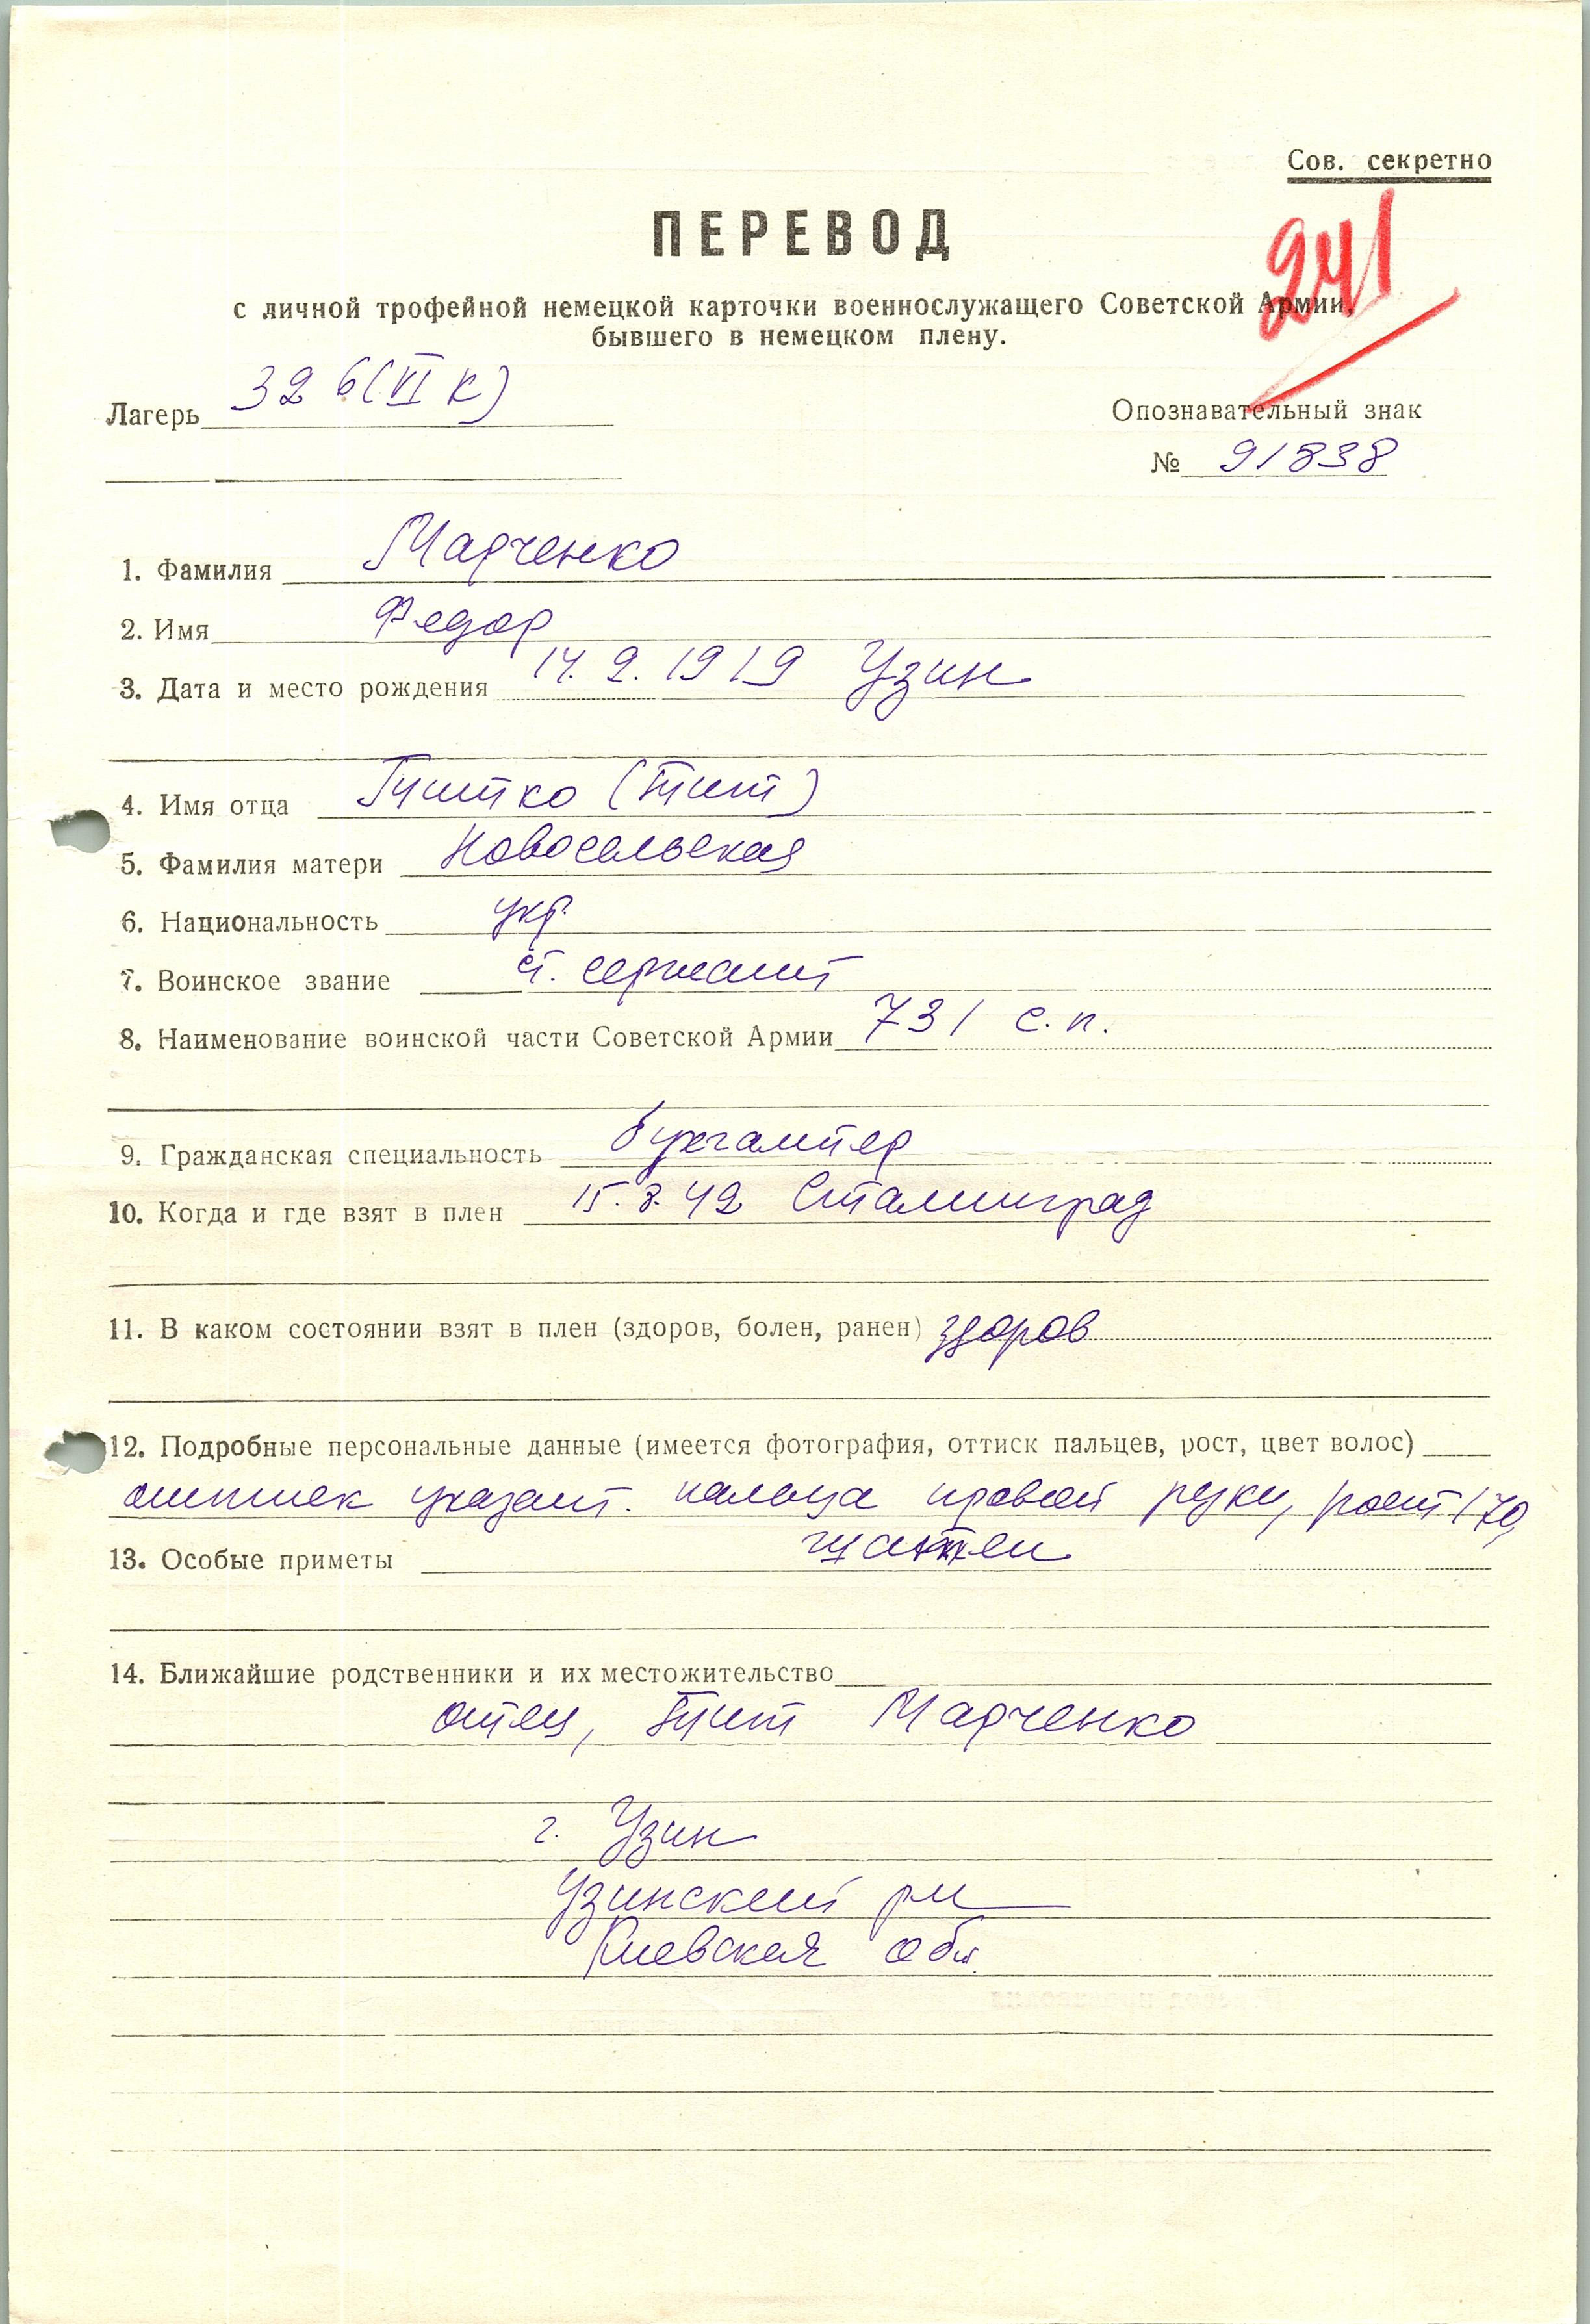 Сов. секретно
ПЕРЕВОД
241
с личной трофейной немецкой карточки военнослужащего Советской Армии,
бывшего в немецком плену.
Лагерь 326 (VI К)
Опознавательный знак
№ 91838
1. Фамилия Марченко
2. Имя Федор
3. Дата и место рождения 14. 2. 1919 Узин
4. Имя отца Титко (Тит)
5. Фамилия матери Новосельская
6. Национальность укр.
7. Воинское звание ст. сержант
8. Наименование воинской части Советской Армии 731 с.п.
9. Гражданская специальность бухгалтер
10. Когда и где взят в плен 15.8.42 Сталинград
11. В каком состоянии взят в плен (здоров, болен, ранен) здоров
12. Подробные персональные данные (имеется фотография, оттиск пальцев, рост, цвет волос)
оттиск указат. пальца правой руки, рост 170,
13. Особые приметы
14. Ближайшие родственники и их местожительство
отец, Тит Марченко
г. Узин
Узинский р-н
Киевская обл.